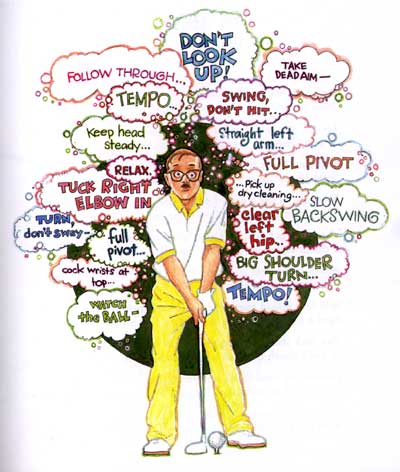 DON'T
LOOK
UP!
FOLLOW THROUGH...
TAKE
DEAD AIM —
TEMPO...
SWING,
DON'T HIT...
Keep head
steady...
Straight left
arm...
RELAX.
FULL PIVOT
TUCK RIGHT
ELBOW IN
...Pick up
dry cleaning...
SLOW
BACKSWING
TURN,
don't sway-
full
pivot...
clear
left
hip...
BIG SHOULDER
TURN...
cock wrists at
top...
TEMPO!
WATCH
the BALL-